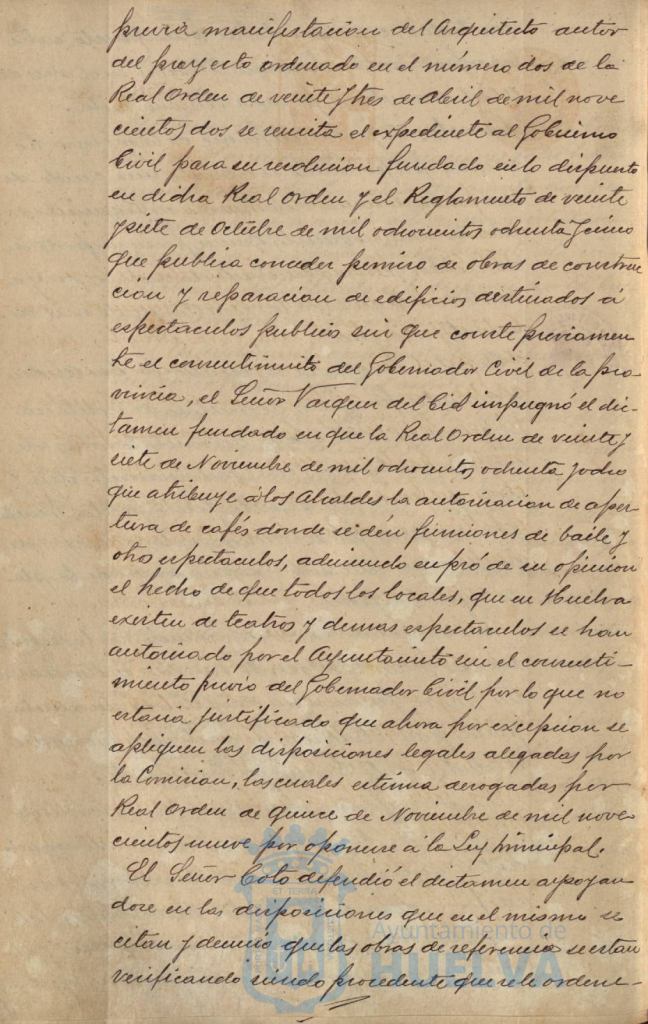 previa manifestacion del Arquitecto autor
del proyecto ordenado en el número dos de la
Real Orden de veinte y tres de Abril de mil nove
cientos dos se remita el expediente al Gobierno
Civil para su resolucion fundado en lo dispuesto
en dicha Real Orden y el Reglamento de veinte
y siete de Octubre de mil ochocientos ochenta y cinco
que publica conceder permiso de obras de construc
cion y reparacion de edificios destinados á
espectaculos publicos sin que conste previamen
te el consentimiento del Gobernador Civil de la pro-
vincia, el Señor Vazquez del Cid impugnó el dic-
tamen fundado en que la Real Orden de veinte y
siete de Noviembre de mil ochocientos ochenta y ocho
que atribuye á los Alcaldes la autorizacion de aper
tura de cafés donde se dén funciones de baile y
otros espectaculos, aduciendo en pró de su opinion
el hecho de que todos los locales, que en Huelva
existen de teatros y demas espectaculos se han
autorizado por el Ayuntamiento sin el consenti-
miento previo del Gobernador Civil por lo que no
estaria justificado que ahora por excepcion se
apliquen las disposiciones legales alegadas por
la Comision, las cuales estima derogadas por
Real Orden de quince de Noviembre de mil nove-
cientos nueve por oponerse á la Ley Municipal.
El Señor Coto defendió el dictamen apoyan
dose en las disposiciones que en el mismo se
citan y denunció que las obras de referencia se estan
verificando siendo procedente que se le ordene-
Ayuntamiento de
HUELVA